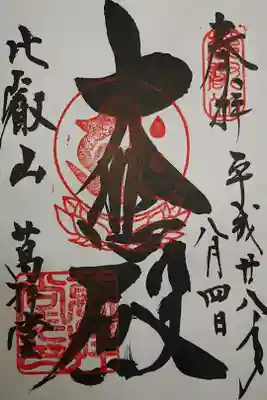 奉拝
平成廿八年
八月四日
大悲殿
比叡山 萬拝堂